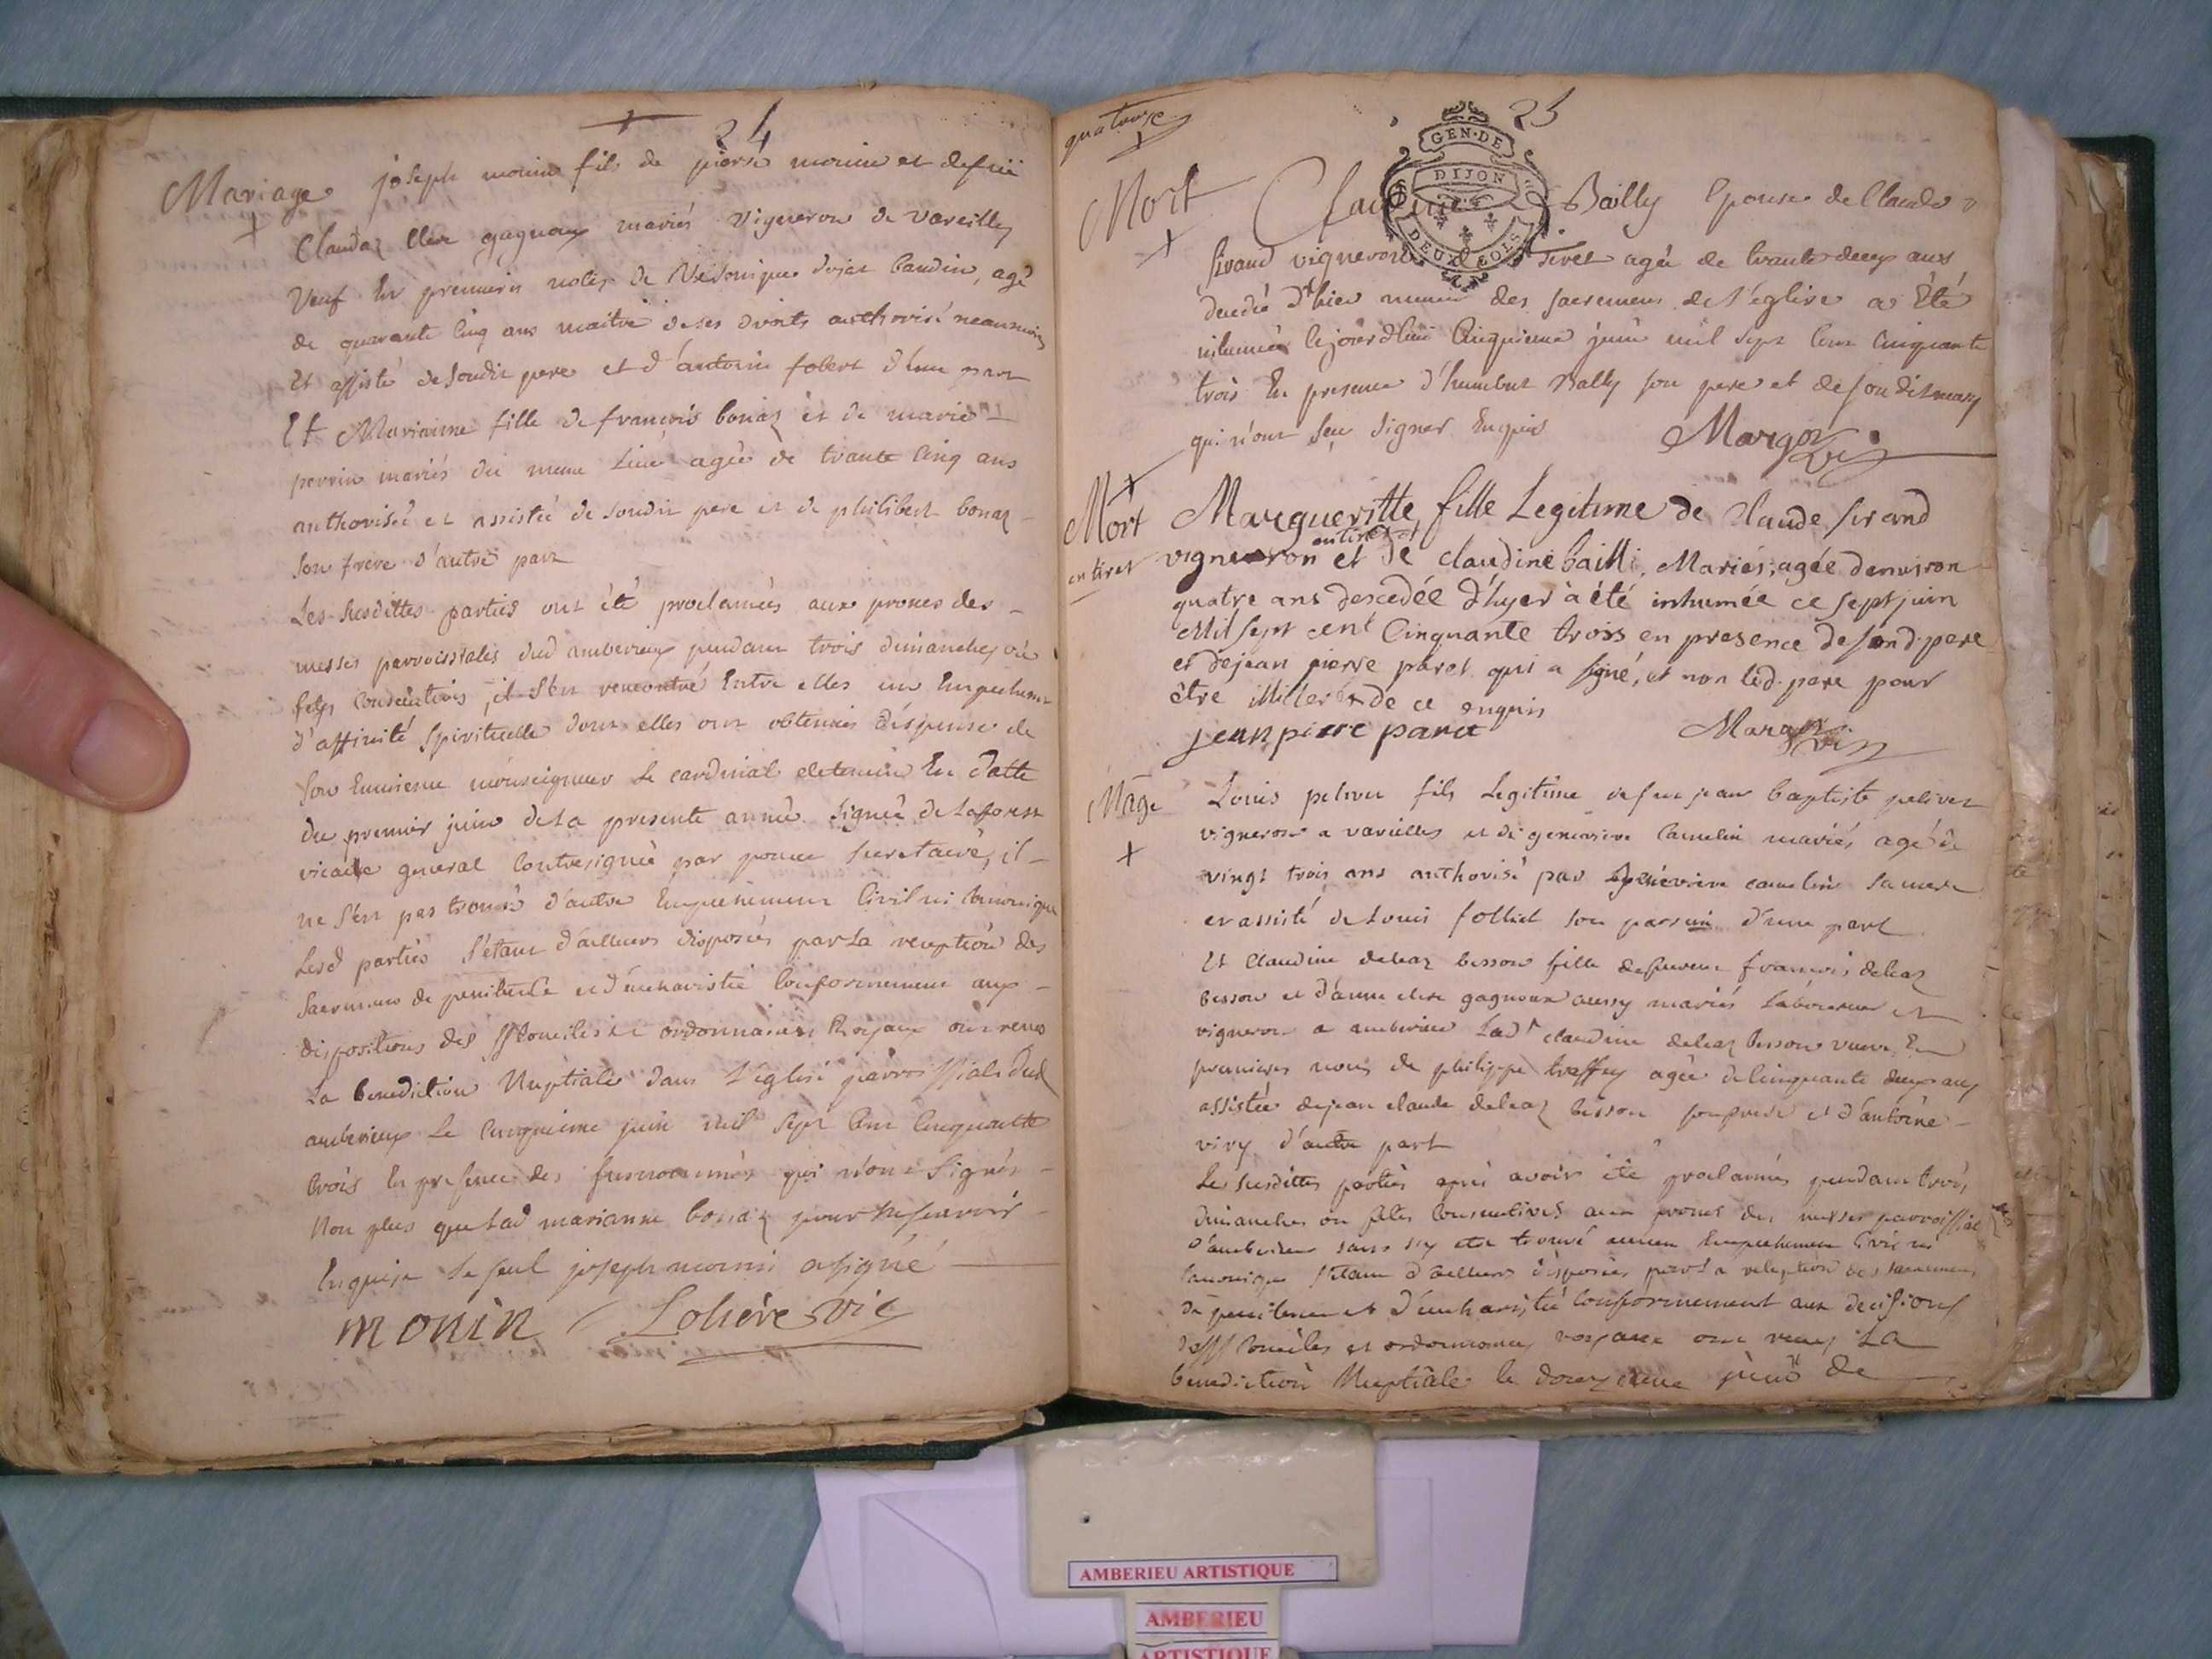 24
Mariage joseph monin fils de pierre monin et defuë
Claudaz Clere gagnoux mariés vigneron de vareilles
veuf En premieres noces de Veronique dujat baudin, agé
de quarante Cinq ans maitre de ses droits authorisé neanmoins
Et assisté desondit pere et d'antoine folliet d'une part
Et Marianne fille de françois bonaz et de marie
perrin mariés du meme Lieu agée de trante Cinq ans
authorisée et assistée de sondit pere et de philibert bonaz
son frere d'autre part
Les susdittes parties ont été proclamées aux prones des
messes parroissiales dud amberieux pendant trois dimanches ou
fetes Consecutives, il s'est rencontré Entre elles un Empechement
d'affinité spirituelle dont elles ont obtenües dispense de
son Eminence monseigneur le cardinal de tencin En datte
du premier juin de La presente année signée de Laforest
vicaire general Contresignée par secretaire, il
ne s'est pas trouvé d'autre Empechement Civil ni Canonique
Lesd parties s'etant d'ailleurs disposées par La reception des
sacremens de penitence et d'eucharistie Conformement aux
dispositions des SS Conciles et ordonnances Royaux ont recus
La benediction Nuptiale dans l'eglise parroissiale dud
amberieux Le Cinquieme juin mil sept Cent Cinquante
trois En presence des susnommés qui n'ont signés
Non plus que Lad marianne bonaz pour ne sçavoir
Enquise Le seul joseph monin a signé
monin Lohere vic
quatorze
25
GEN·DE
DIJON
DEUX SOLS
Mort Claudine Bailly Epouse de Claude
sirand vigneron Tiret agée de trante deux ans
decedée d'hier munie des sacremens de l'eglise a Eté
inhumée cejourdhui Cinquieme juin mil sept Cent Cinquante
trois En presence d'humbert Bally son pere et de son dit mary
qui n'ont sçeu signer Enquis Margoz vic
Mort
en tiret
Margueritte fille Legitime de Claude sirand
en tiret
vigneron et de claudine bailli, Mariés, agée denviron
quatre ans descedée d'hyer à été inhumée ce sept juin
Mil sept cent Cinquante trois en presence de sond. pere
et de jean pierre paret qui a signé, et non led. pere pour
être illiteré de ce enquis
jean piere paret Margoz vic
Mage
Louis pelivet fils Legitime de feu jean baptiste pelivet
vigneron a varielles et de genevieve Camelin mariés, agé de
vingt trois ans authorisé par Genevieve camelin sa mere
et assisté de Louis folliet son parrain d'une part
Et Claudine deleaz besson fille defunt françois deleaz
besson et d'anne clere gagnoux aussy mariés Laboureur et
vigneron a amberieu Lad. claudine deleaz besson veuve En
premieres noces de philippe agée de Cinquante deux ans
assistée dejean claude deleaz besson son frere et d'antoine
viry d'autre part
Les susdittes parties aprés avoir été proclamées pendant trois
dimanches ou fetes Consecutives aux prones des messes parroissiales
d'amberieu sans s'y etre trouvé aucun Empechement Civil ni
Canonique s'étant d'ailleurs disposées par La reception des sacremens
de penitence et d'eucharistie Conformement aux decisions
des SS Conciles et ordonnances royaux ont receus La
benediction Nuptiale le douzieme juin de
AMBERIEU ARTISTIQUE
AMBERIEU
ARTISTIQUE